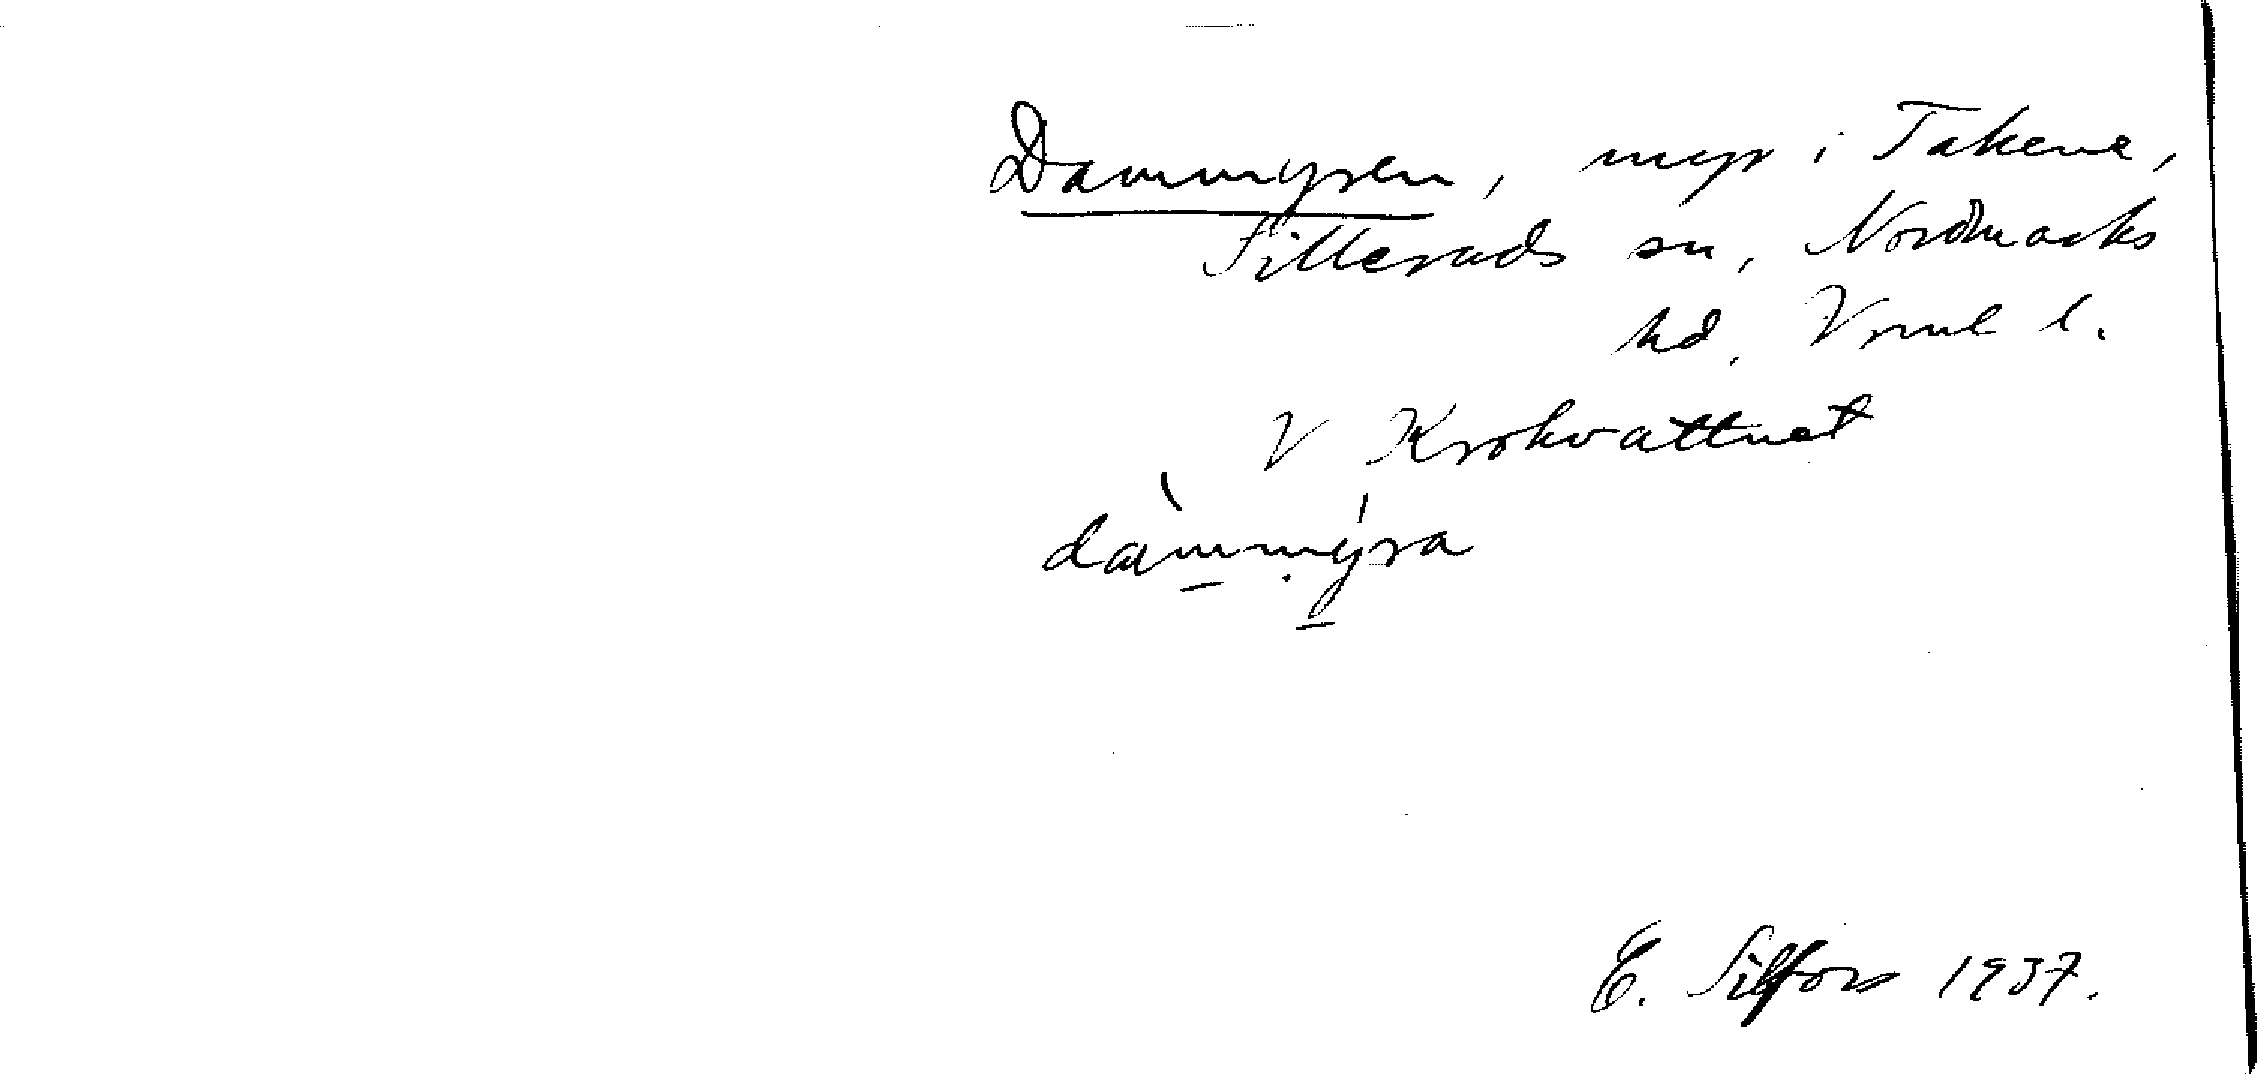 Dammyren, myr i Takene,
Silleruds sn, Nordmarks
hd, Vrml l.
V Krokvattnet
dàmmýra
E. Silfors 1937.